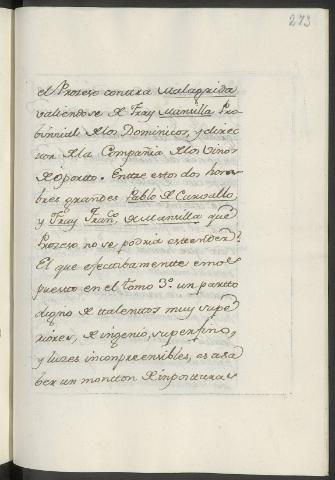 273
el Prozeso contra Malagrida
valiendose de Fray Mansilla Pro-
binzial de los Dominicos, y direc
tor de la Compañia de los Vinos
de Oporto. Entre estos dos hom-
bres grandes Pablo de Carvallo,
y Fray Franco. de Mansilla que
Prozeso no se podria extender?
El que efectibamente emos
puesto en el tomo 3o. un parto
digno de talentos muy supe-
riores, de ingenio superfino,
y luzes inconpreensibles, es a sa-
ber un monton de inposturas